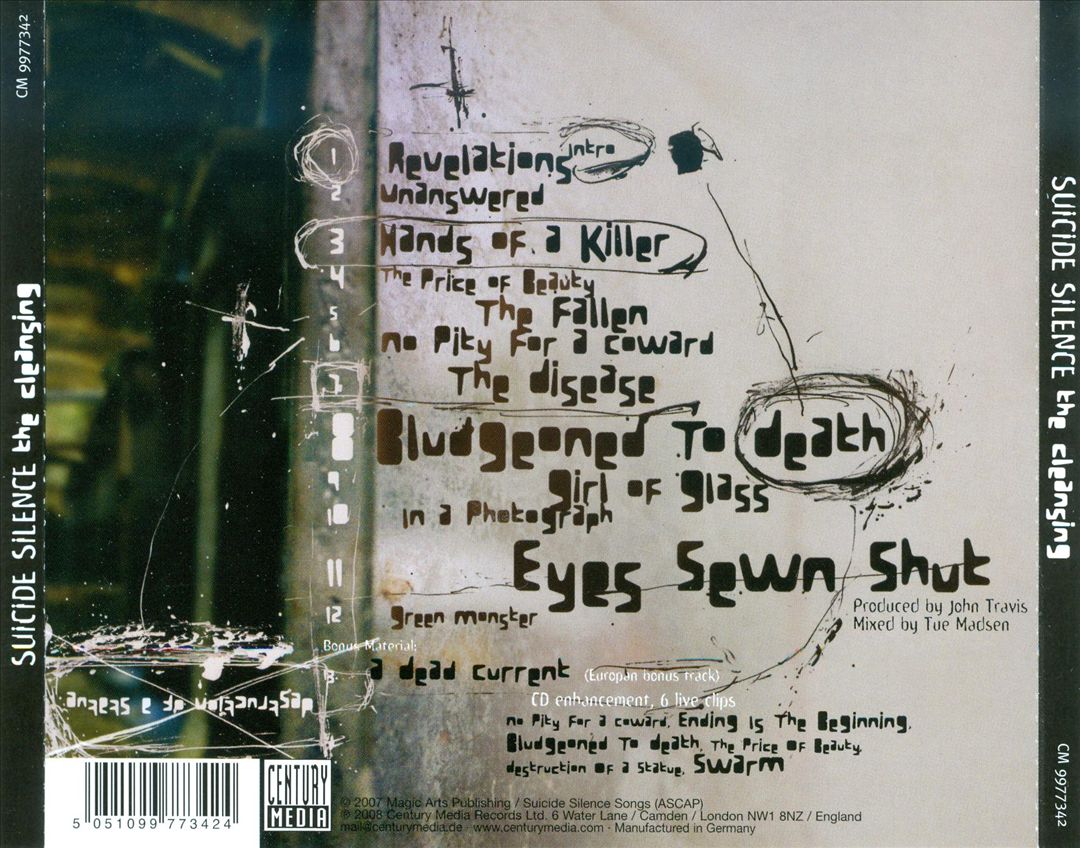 CM 9977342
SUiCIDE SiLENCE the cleansing
1 Revelations Intro
2 unanswered
3 Hands of a Killer
4 The Price of Beauty
5 The Fallen
6 no Pity for a coward
7 The disease
8 Bludgeoned To death
9 girl of glass
10 In a Photograph
11 Eyes Sewn Shut
12 green monster
Produced by John Travis
Mixed by Tue Madsen
Bonus Material:
13. a dead current (Europan bonus track)
CD enhancement, 6 live clips
no Pity for a coward, Ending Is The Beginning,
Bludgeoned To death, The Price of Beauty,
destruction of a statue, Swarm
destruction of a statue
5 051099 773424
CENTURY MEDIA
© 2007 Magic Arts Publishing / Suicide Silence Songs (ASCAP)
℗ 2008 Century Media Records Ltd. 6 Water Lane / Camden / London NW1 8NZ / England
mail@centurymedia.de · www.centurymedia.com · Manufactured in Germany
SUiCIDE SiLENCE the cleansing
CM 9977342